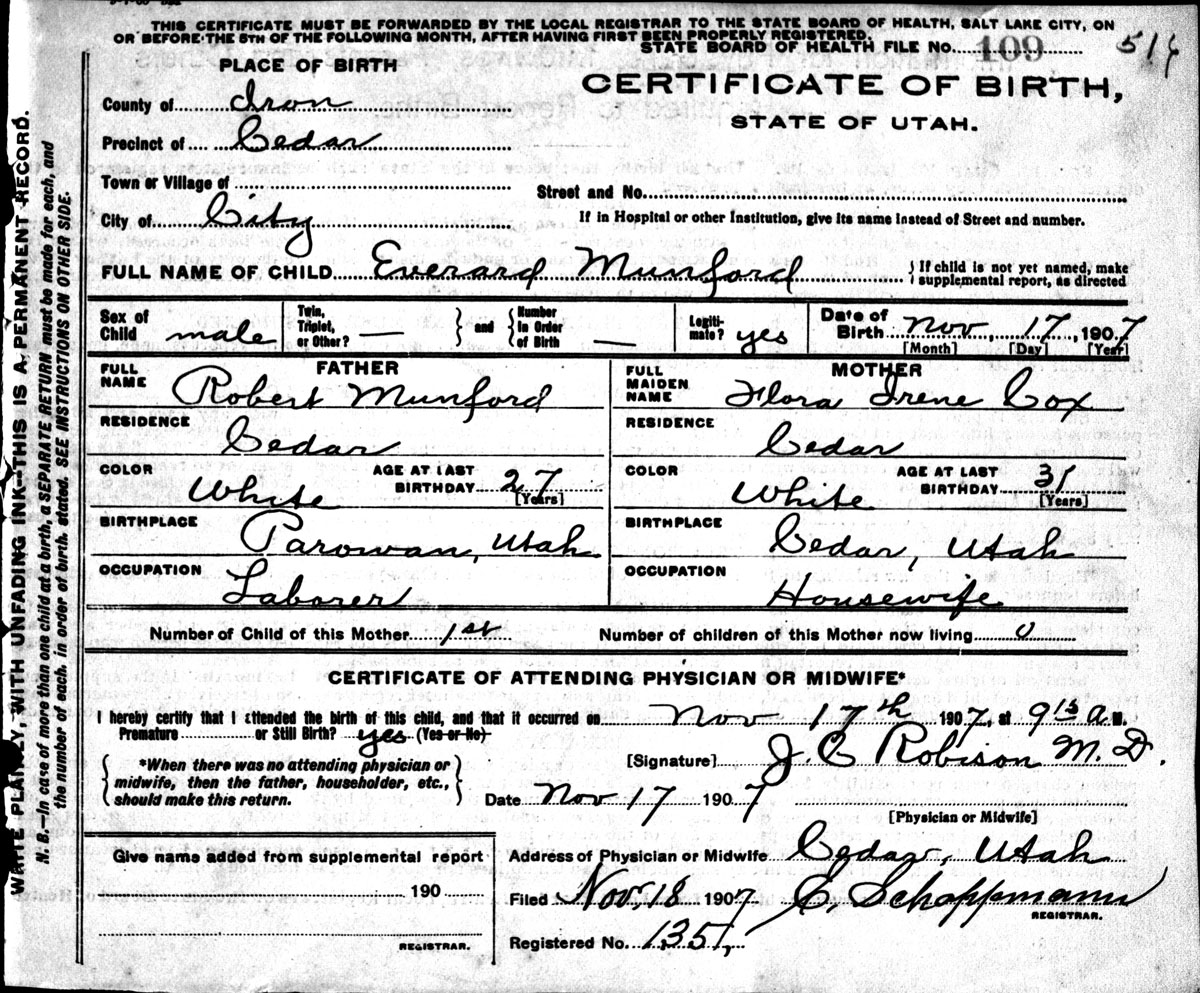 THIS CERTIFICATE MUST BE FORWARDED BY THE LOCAL REGISTRAR TO THE STATE BOARD OF HEALTH, SALT LAKE CITY, ON
OR BEFORE THE 5TH OF THE FOLLOWING MONTH, AFTER HAVING FIRST BEEN PROPERLY REGISTERED.
STATE BOARD OF HEALTH FILE No. 109
PLACE OF BIRTH
CERTIFICATE OF BIRTH,
STATE OF UTAH.
County of Iron
Precinct of Cedar
Town or Village of
Street and No.
City of City
If in Hospital or other Institution, give its name instead of Street and number.
FULL NAME OF CHILD Everard Munford
{ If child is not yet named, make supplemental report, as directed
Sex of Child male
Twin, Triplet, or Other? —
} and {
Number in Order of Birth —
Legiti-mate? yes
Date of Birth Nov 17, 1907
[Month] [Day] [Year]
FATHER
MOTHER
FULL NAME Robert Munford
FULL MAIDEN NAME Flora Irene Cox
RESIDENCE Cedar
RESIDENCE Cedar
COLOR White
AGE AT LAST BIRTHDAY 27 [Years]
COLOR White
AGE AT LAST BIRTHDAY 31 [Years]
BIRTHPLACE Parowan, Utah
BIRTHPLACE Cedar, Utah
OCCUPATION Laborer
OCCUPATION Housewife
Number of Child of this Mother 1st
Number of children of this Mother now living 0
CERTIFICATE OF ATTENDING PHYSICIAN OR MIDWIFE*
I hereby certify that I attended the birth of this child, and that it occurred on Nov 17th 1907, at 9 15 a M.
Premature or Still Birth? yes (Yes or No)
{ *When there was no attending physician or midwife, then the father, householder, etc., should make this return. }
[Signature] J. C Robison M. D.
Date Nov 17 1907
[Physician or Midwife]
Give name added from supplemental report
190
REGISTRAR.
Address of Physician or Midwife Cedar, Utah
Filed Nov. 18 1907 C. Schoppmann
REGISTRAR.
Registered No. 1351,
WRITE PLAINLY, WITH UNFADING INK—THIS IS A PERMANENT RECORD.
N. B.—In case of more than one child at a birth, a SEPARATE RETURN must be made for each, and
the number of each, in order of birth, stated. SEE INSTRUCTIONS ON OTHER SIDE.